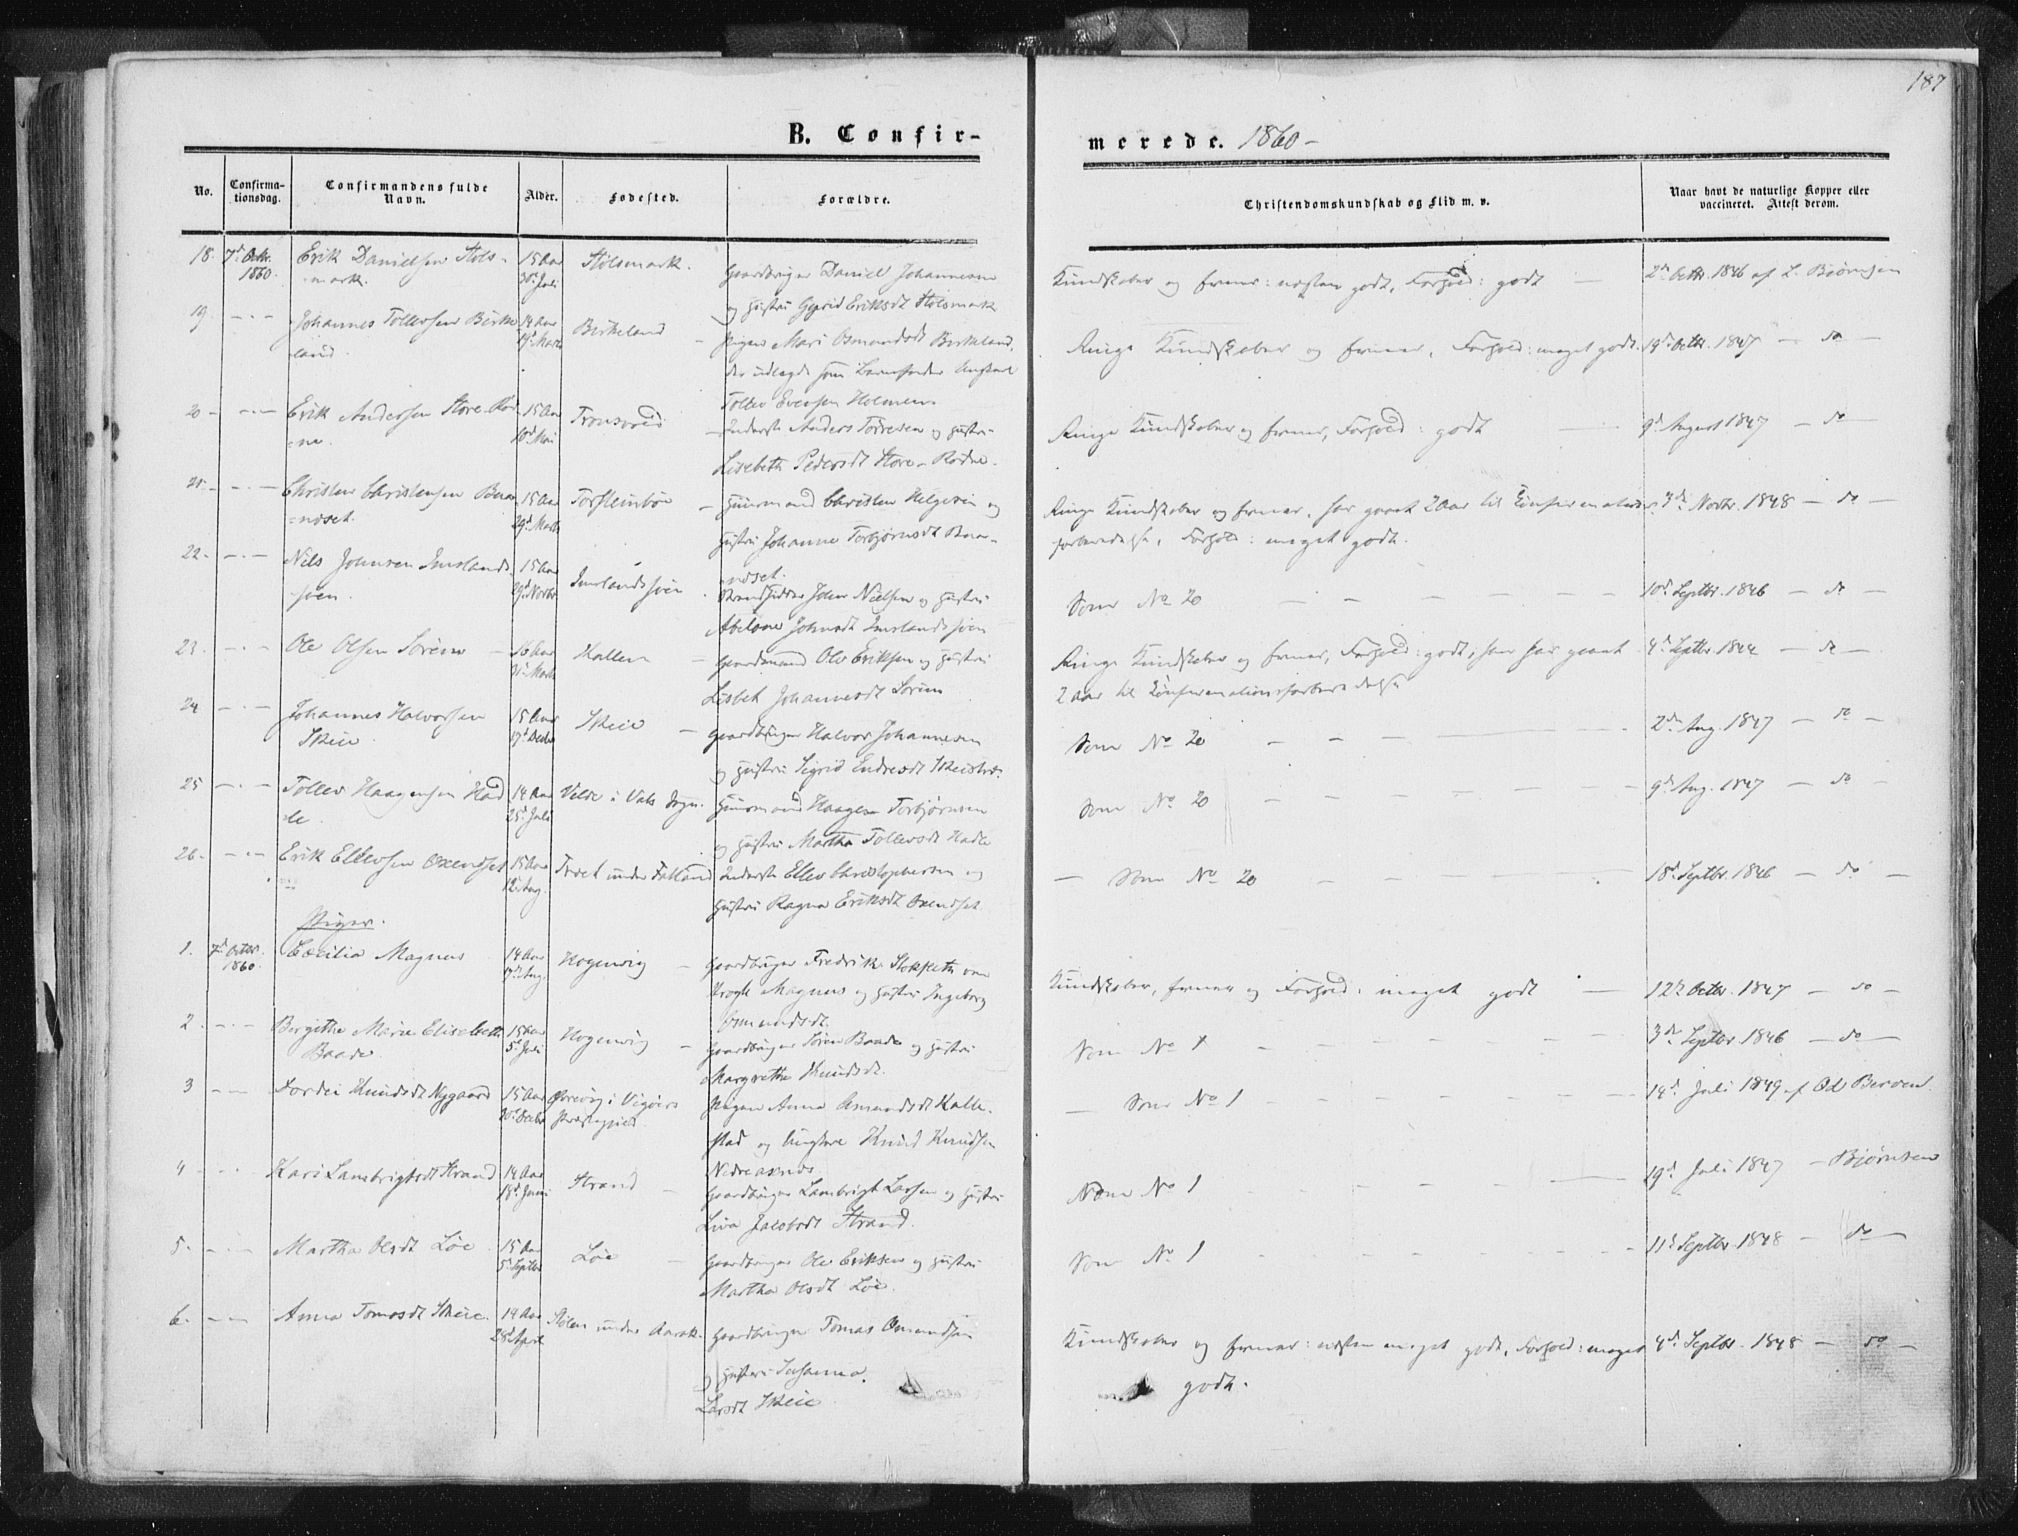 187
B. Confir-
merede. 1860 -
No.
Confirma-
tionsdag.
Confirmandens fulde
Navn.
Alder.
Fødested.
Forældre.
Christendomskundskab og Flid m. v.
Naar havt de naturlige Kopper eller
vaccineret. Attest derom.
18. 7d Octr. 1860. Erik Danielsen Stols-
mark. 15 Aar Stølsmark. Gaardbruger Daniel Johannesen
og Hustru Eriksdt Stolsmark
Kundskaber og Evner: næsten godt, Forhold: godt — 2d Octbr. 1846 af L. Bjørnsen
19. - - - Johannes Tollevsen Birke
land. 14 Aar 19d Marts Birkeland - Pigen Mari Osmundsdt Birkeland,
der udlagde som Barnefader Ungkarl
Tollev Evensen Holmen
Ringe Kundskaber og Evner, Forhold: meget godt. 19d Octbr. 1847 - do -
20 - - - - Erik Andersen Store-Rød
ne. 15 Aar 10d Mai - Inderste Anders Torresen og Hustru
Lisebeth Pedersdt Store-Rødne.
Ringe Kundskaber og Evner, Forhold: godt 9d August 1847 - do -
21 - - - Christen Christensen
ndset. 15 Aar 29d Marts Torsteinbøe - Huusmand Christen Helgesen og
Hustru Johanne Torbjørnsdt
ndset.
Ringe Kundskaber og Evner, har gaaet 2 Aar til Confirmations
forberedelse, Forhold: meget godt. 3d Novbr. 1848 - do -
22. - - - Nils Johnsen Imslands
søen. 15 Aar 29d Novbr Imslandssøen. Strandsidder John Nielsen og Hustru
Abelone Johnsdt Imslandssøen
Som No 20 - - - - - 10d Septbr. 1846 - do -
23. - - - Ole Olsen Sørem - 16 Aar 31d Marts Hallen - Gaardmand Ole Eriksen og Hustru
Lisbet Johannesdt Sørem
Ringe Kundskaber og Evner, Forhold: godt; han har gaaet
2 Aar til Confirmationsforberedelse 4d Septbr. 1844 - do -
24 - - - Johannes Halvorsen
Skeie. 15 Aar 17d Decbr Skeie - Gaardbruger Halvor Johannesen
og Hustru Sigrid Endresdt
Som No 20 - - - 2d Aug. 1847 - do -
25 - - - Tollev Haagensen Had
le. 14 Aar 25d Juli Velde i Vats Sogn. Huusmand Haagen Torbjørnsen
og Hustru Martha Tollevsdt Hadle
Som No 20 - - - - - 9d Aug. 1847 - do -
26. - - - Erik Ellevsen Oxendset 15 Aar 12d Aug. Tveet under Fatland Inderste Ellev Christophersen og
Hustru Ragna Eriksdt Oxendset
- Som No 20 - - - 18d Septbr. 1846 - do -
Piger.
1. 7d Octbr. 1860. Cecilia Magnus 14 Aar 17d Aug. Hogenvig - Gaardbruger Fredrik
Magnus og Hustru Ingeborg
Osmundsdt.
Kundskaber, Evner og Forhold: meget godt — 12d Octbr. 1847 - do -
2. - - - Birgithe Marie Elisabeth
Baade 15 Aar 5d Juli Hogenvig - Gaardbruger Søren Baade og Hustru
Margrethe Knudsdt.
Som No 1 - - - - - 3d Septbr. 1846 - do -
3 - - Tordei Knudsdt Nygaard 15 Aar 20d Decbr i Vigøers
Præstegjeld. Pigen Anna Asmundsdt Kalle-
stad og Ungkarl Knud Knudsen
Nedreaasnes
- Som No 1 - - - - - 14d Juli 1849 af Od Berven.
4 - - - Kari Lambrigtsdt Strand 14 Aar 18d Juni Strand - Gaardbruger Lambrigt Larsen og Hustru
Liva Jakobsdt Strand.
Som No 1 - - - - 19d Juli 1847 - Bjørnsen
5. - - - Martha Olsdt Løe 15 Aar 5d Septbr Løe - Gaardbruger Ole Eriksen og Hustru
Martha Olsdt Løe.
Som No 1 - - - - - 11d Septbr 1848 - do -
6. - - Anna Tomasdt Skeie. 14 Aar 28d April Stølen under Aarak. Gaardbruger Tomas Omundsen
og Hustru Susanna
Larsdt Skeie
Kundskaber og Evner: næsten meget godt, Forhold: meget
godt. 4d Septbr. 1848 - do -